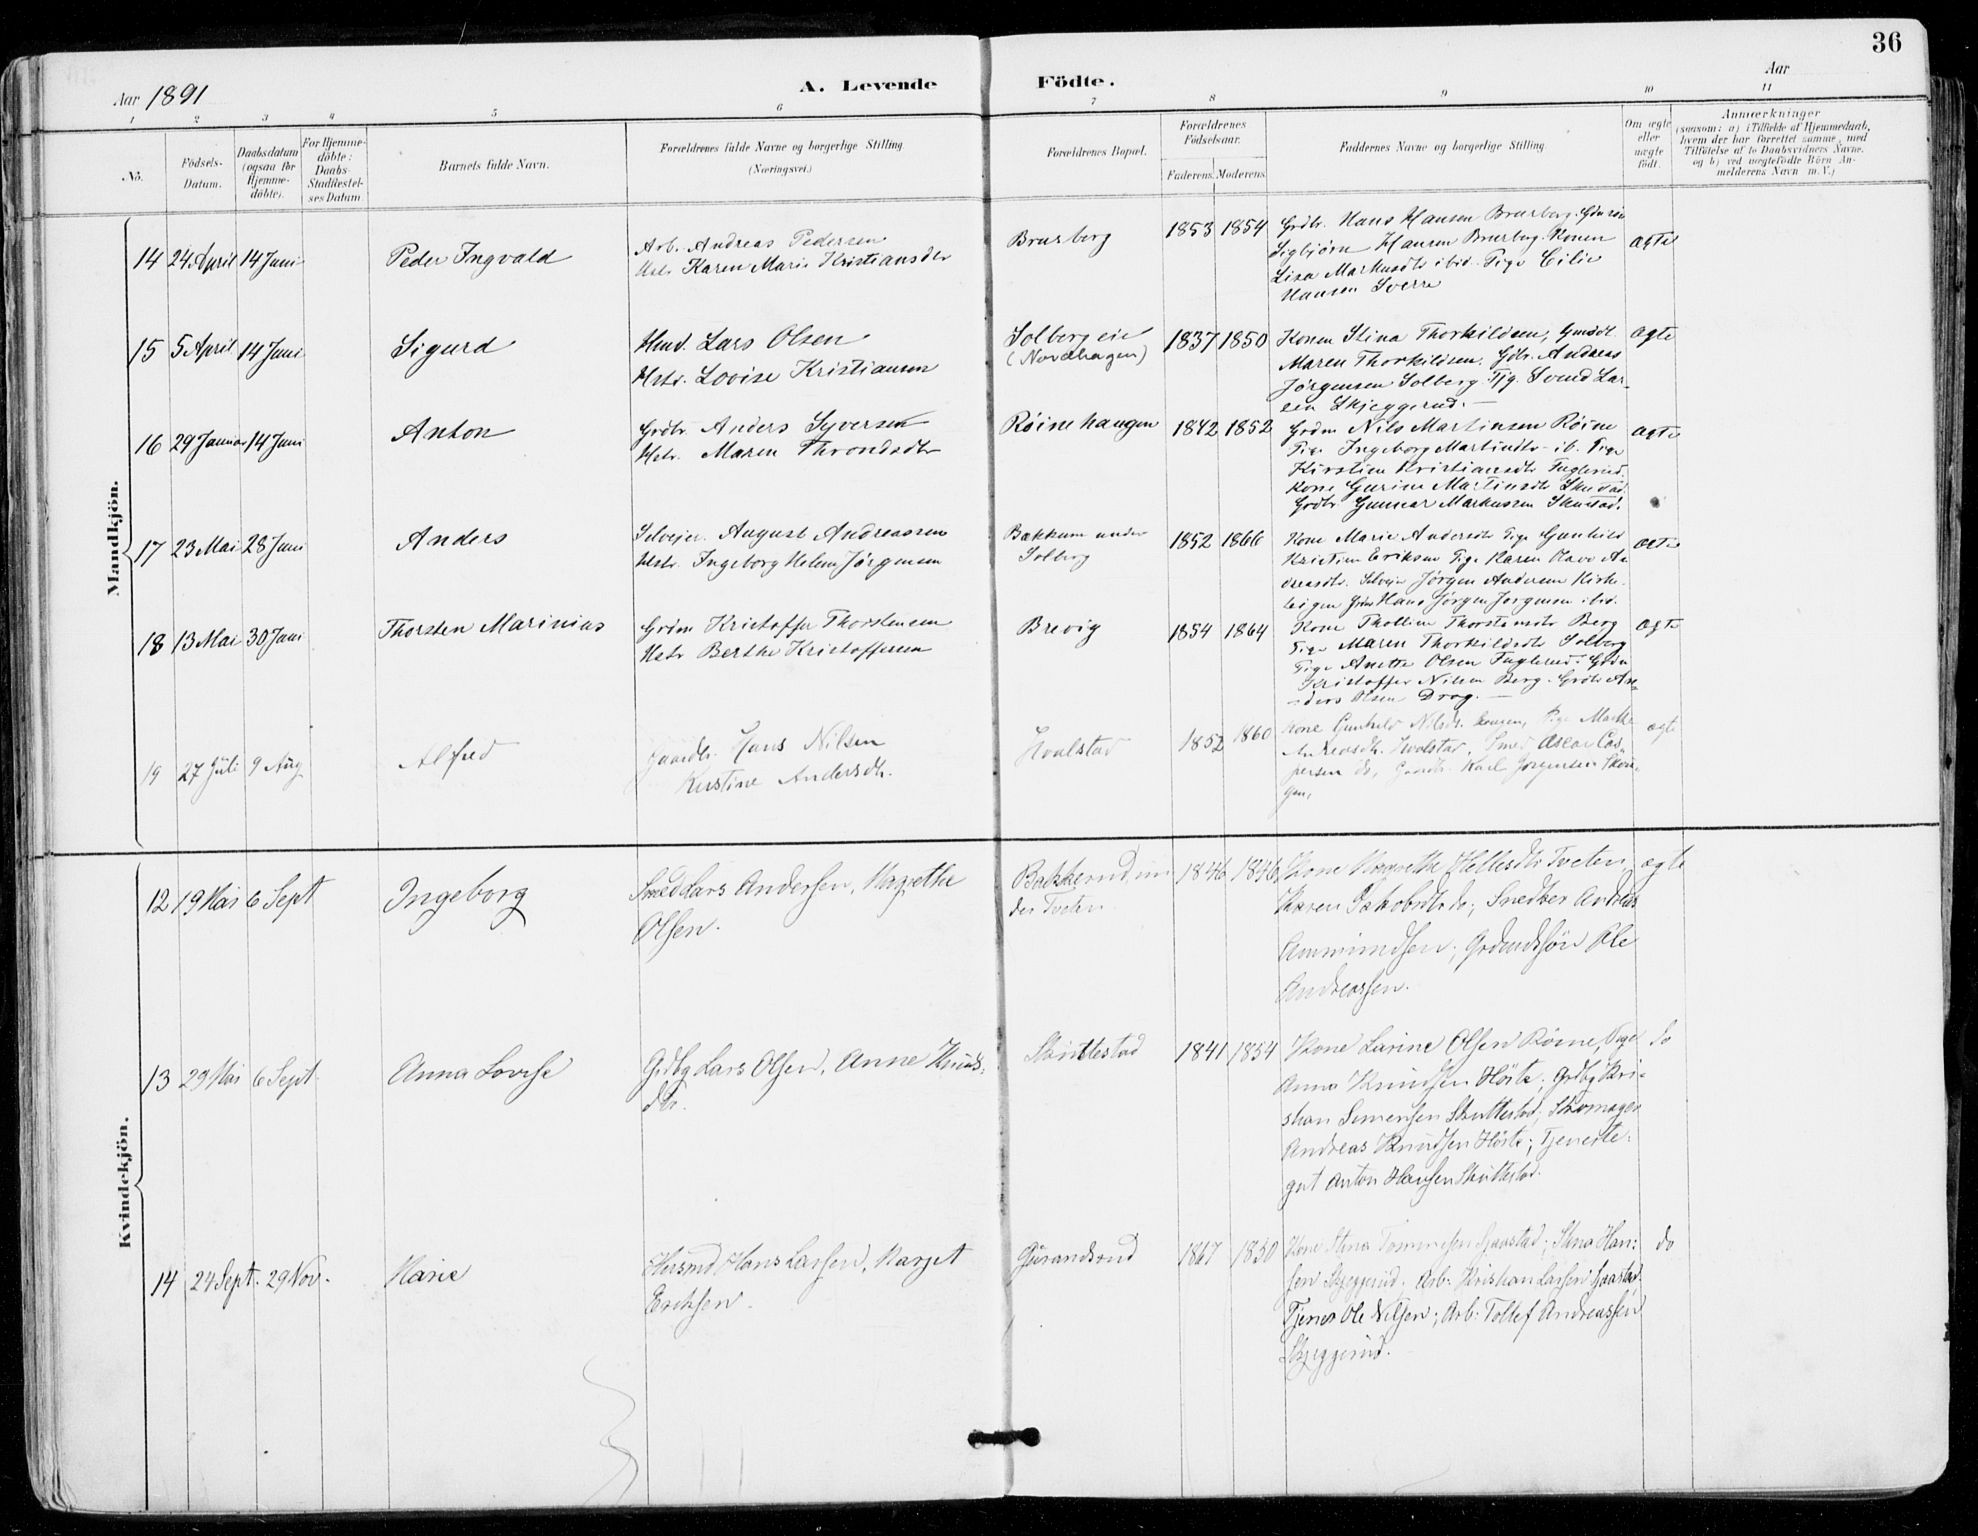 36
Aar 1891
A. Levende Födte.
Aar
1 2 3 4 5 6 7 8 9 10 11
No.
Födsels-Datum.
Daabsdatum (ogsaa for Hjemme-döbte).
For Hjemme-döbte: Daabs-Stadfæstel-ses Datum
Barnets fulde Navn.
Forældrenes fulde Navne og borgerlige Stilling
(Næringsvei.)
Forældrenes Bopæl.
Forældrenes Födselsaar.
Faderens. Moderens.
Faddernes Navne og borgerlige Stilling.
Om ægte eller uægte födt.
Anmærkninger
(saasom: a) i Tilfælde af Hjemmedaab,
hvem der har forrettet samme, med
Tilföielse af to Daabsvidners Navne.
og b) ved uægtefödte Börn An-
melderens Navn m. V.)
Mandkjön.
14 24 April 14 Juni
Peder Ingvald
Arb. Andreas Pedersen
Hstr Karen Marie Kristiansdtr
Brusberg
1853 1854
Grdbr. Hans Hansen Brusberg.
Sigbjörn Hansen Brusberg. Konen
Lisa Markusdtr ibid. Pige Cilie
Hansen Sverre
ægte
15 5 April 14 Juni
Sigurd
Hmd. Lars Olsen
Hstr. Lovise Kristiansen
Solberg eie
(Nordhagen)
1837 1850
Konen Stina Thorkildsen,
Maren Thorkildsen. Gdbr. Andreas
Jörgensen Solberg. Tjg. Svend Lar-
sen Skjeggerud. —
ægte
16 29 Januar 14 Juni
Anton
Grdbr Anders Syversen
Hstr. Maren Throndsdtr
Röinehaugen
1842 1852
Grdm Nils Martinsen Röine
Pige Ingeborg Martinsdtr ib. Pige
Kirstine Kristiansdtr Fuglerud.
Kone Gurine Martinsdtr
Grdbr Gunnar Markussen
ægte
17 23 Mai 28 Juni
Anders
Selveier August Andreassen
Hstr. Ingeborg Helene Jörgensen
Bakkum under
Solberg
1852 1866
Kone Marie Andersdtr Pige Gunhild
Kristine Eriksen Pige Karen An-
dreasdtr. Selveier Jörgen Andersen Kirke-
Hans Jörgen Jörgensen ibid.
ægte
18 13 Mai 30 Juni
Thorsten Marinius
Grdm Kristoffer Thorstensen
Hstr Berthe Kristoffersen
Brevig
1854 1864
Kone Thorstensdtr Berg
Pige Maren Thorkildsdtr Solberg
Pige Anette Olsen Fuglerud. Grdm
Kristoffer Nilsen Berg. Grdbr An-
ders Olsen Drag. —
ægte
19 27 Juli 9 Aug
Alfred
Gaardbr. Hans Nilsen
Kirstine Andersdtr.
Hvalstad
1852 1860
Kone Gunhild Nilsdtr. Skougen, Pige
Andreasdtr. Hvalstad, Smed Oscar Cas-
persen do, Gaardbr. Karl Jörgensen Skou-
gen,
ægte
Kvindekjön.
12 19 Mai 6 Sept
Ingeborg
Smed Lars Andersen, Margrethe
Olsen.
Bakkerud, un
der Tveten
1846 1846
Kone Margrethe Tveten,
Karen Jakobsdtr do; Snedker Andreas
Ammundsen; Grdmdssön Ole
Andreassen.
ægte
13 29 Mai 6 Sept.
Anna Lovise
Grdbg Lars Olsen, Anne Knuds-
dtr.
Skuttestad
1841 1854
Kone Larine Olsen Röine, Pige
Anna Knudsen Hörte; Grdbg Kri-
stian Simensen Skuttestad; Skomager
Andreas Knudsen Hörte; Tjeneste-
gut Anton Hansen Skuttestad.
do
14 24 Sept. 29 Nov.
Marie
Husmd Hans Larsen, Marget
Eriksen.
Gurandsrud
1850
Kone Stina Tommesen Sjaastad; Stina Han-
sen Skjeggerud; Arb: Kristian Larsen Sjaastad
Tjener Ole Nilsen; Arb: Tollef Andreassen
Skjeggerud.
do